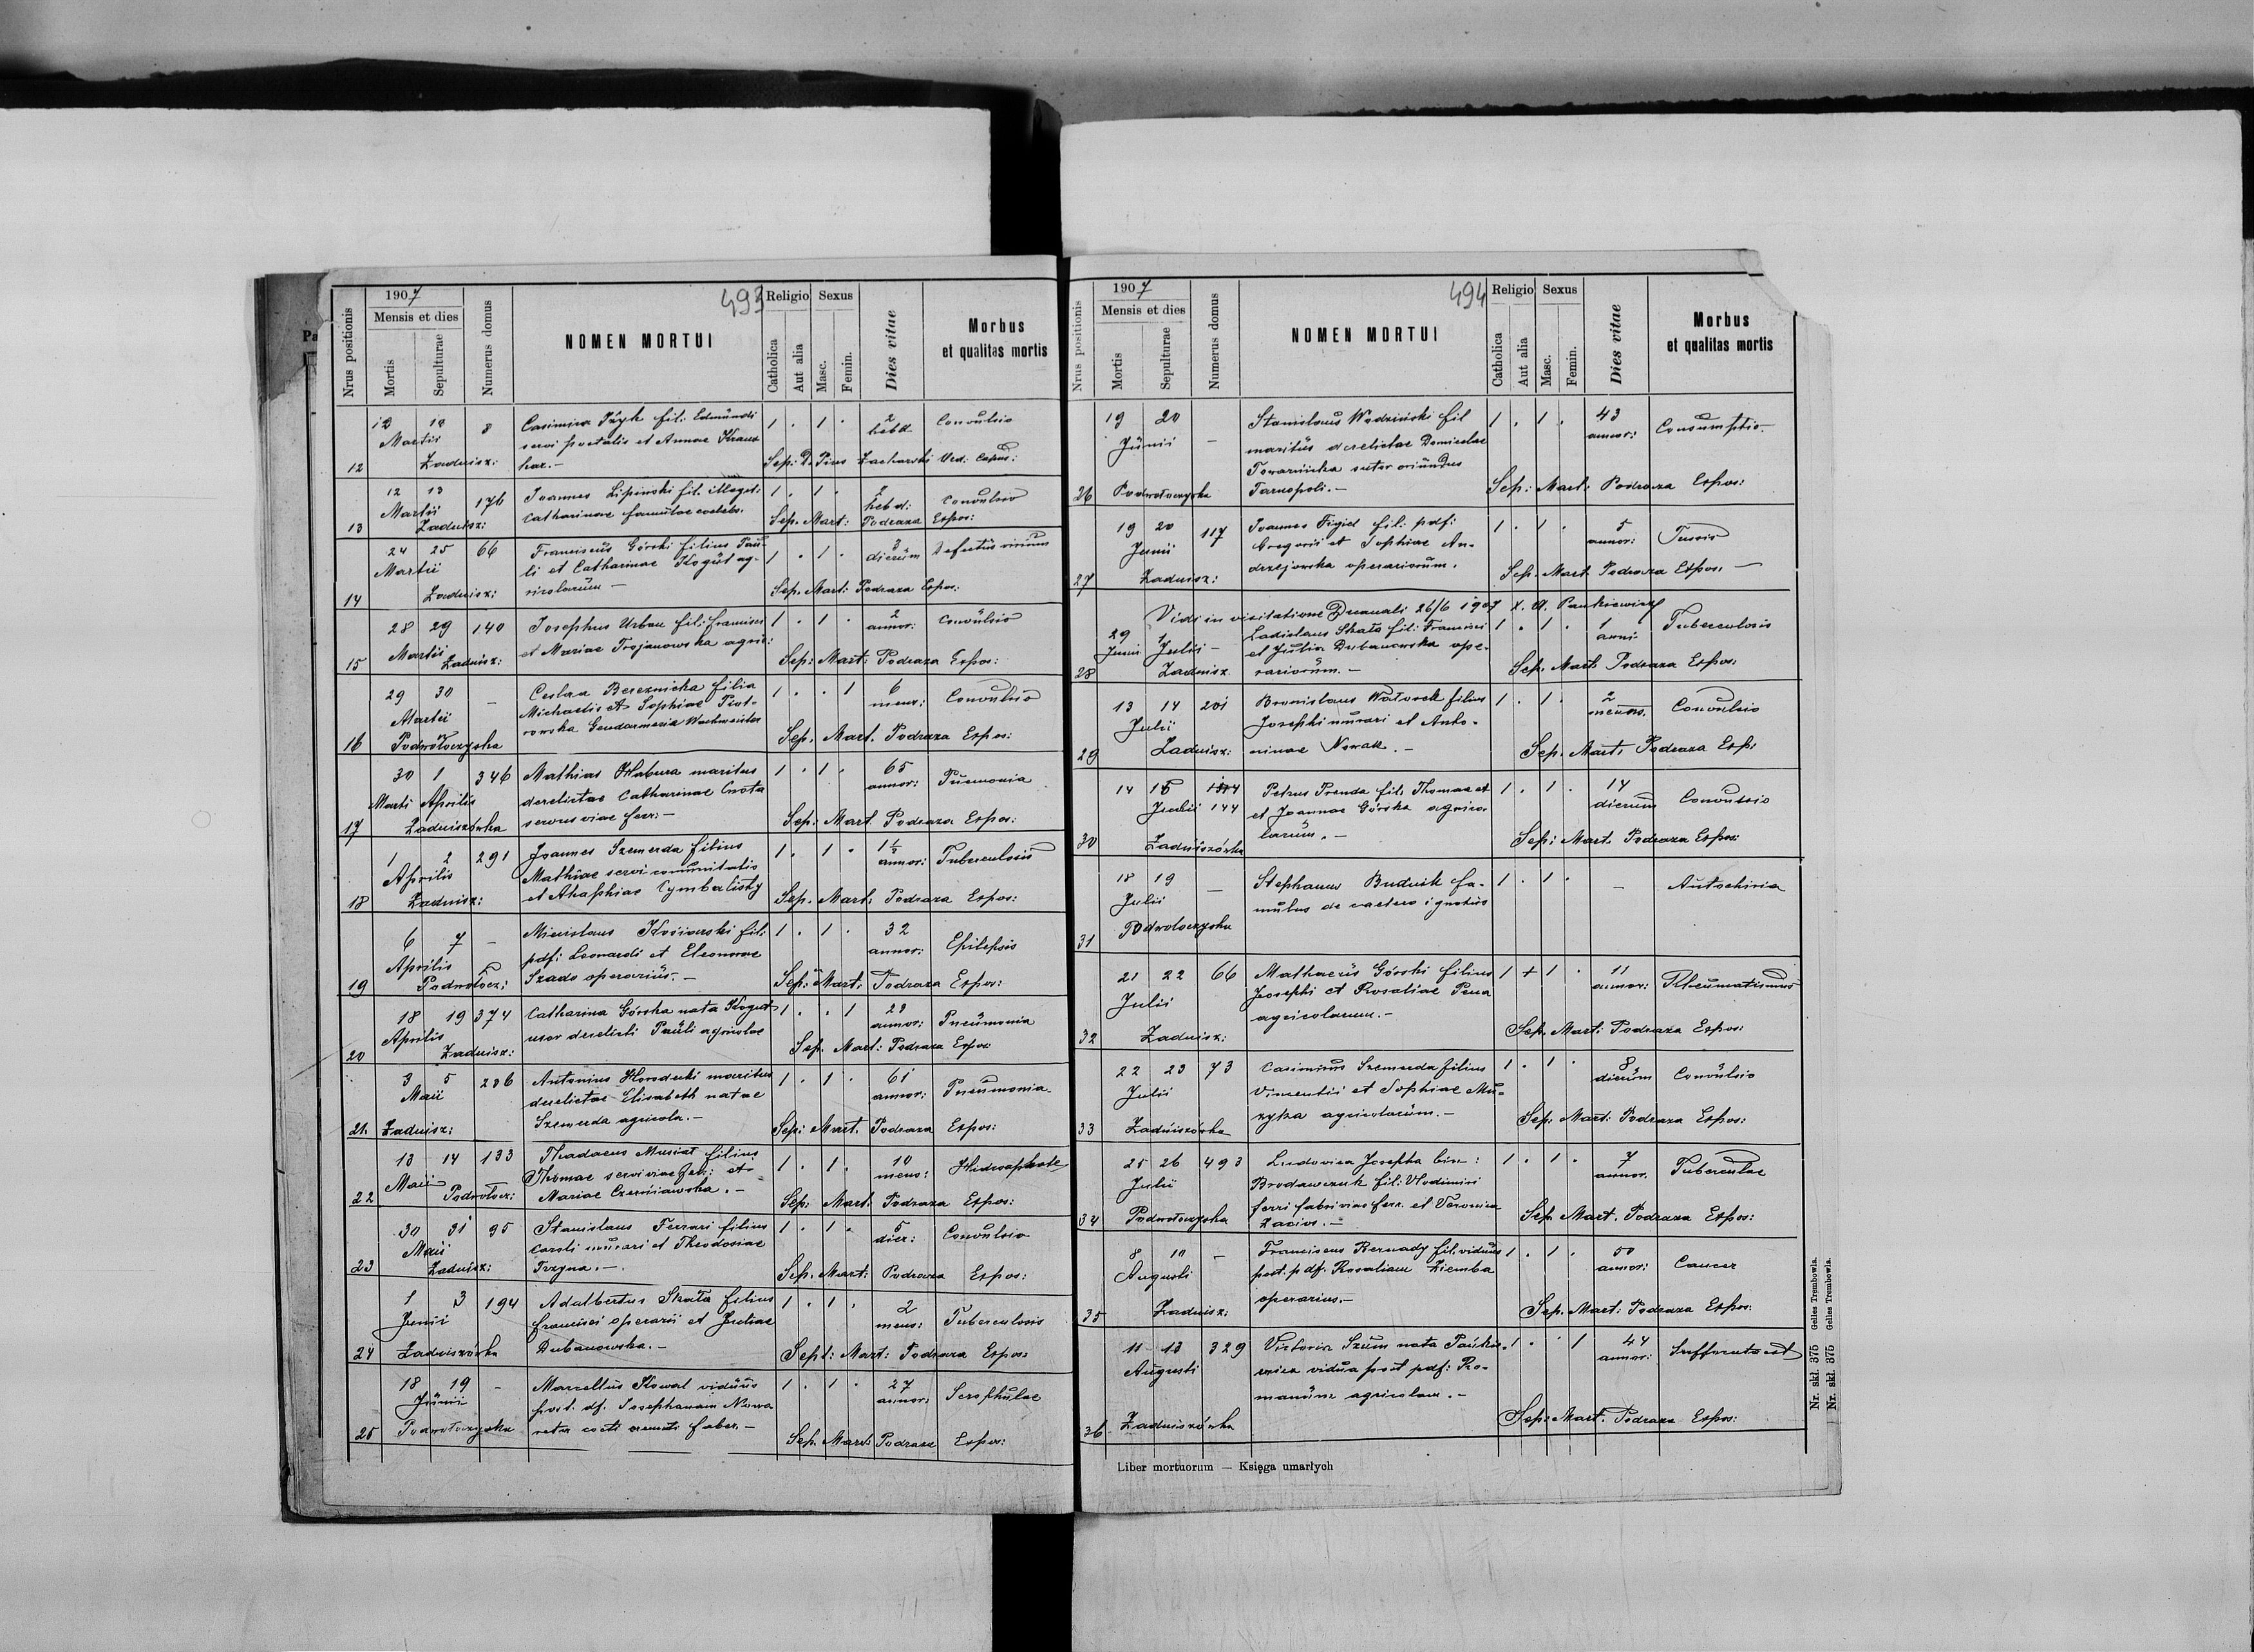 493
1907
Mensis et dies
Nrus positionis
Mortis
Sepulturae
Numerus domus
NOMEN MORTUI
Religio
Catholica
Aut alia
Sexus
Masc.
Femin.
Dies vitae
Morbus
et qualitas mortis
12 8 Casimira fil: Edmundi 1 . 1 . 2 Convulsio
Martii servi postalis et Annae hebd
12 Zadnisz: har.- Sep: Pius Zacharski
12 13 176 Joannes Lipinski fil. illegit: 1 . 1 . hebd: Convulsio
Martii Catharinae famulae coelebs.
13 Zadnisz: Sep. Mart: Podraza Expos:
24 25 66 Franciscus Górski filius Pau- 1 . 1 . 3 Defectus virium
Martii li et Catharinae Kogut ag- dierum
14 Zadnisz: ricolarum - Sep. Mart: Podraza Expos:
28 29 140 Josephus Urban fil: Francisci 1 . 1 . 2 Convulsio
Martii et Mariae Trojanowska agric: annor:
15 Zadnisz: Sep: Mart: Podraza Expos:
29 30 - Ceslaa Bereznicka filia 1 . . 1 6 Convulsio
Martii Michaelis et Sophiae Piot- mens:
rowska Gendarmeria Wachmeister
16 Podwołoczyska Sep. Mart. Podraza Expos:
30 1 346 Mathias Habura maritus 1 . 1 . 65 Pneumonia
Marti Aprilis derelictae Catharinae Cnota annor:
17 Zadniszówka servus viae ferr:- Sep: Mart. Podraza Expos:
1 2 291 Joannes Szemerda filius 1 . 1 . 1½ Tuberculosis
Aprilis Mathiae servi comunitatis annor:
18 Zadnisz: et Ahaphiae Cymbalisty Sep. Mart. Podraza Expos:
6 7 - Micislaus fil: 1 . 1 . 32 Epilepsis
Aprilis pdf: Leonardi et Eleonorae annor:
19 Podwołocz: Szado operarius.- Sep: Mart: Podraza Expos:
18 19 374 Catharina Górska nata Kogut 1 . . 1 annor: Pneumonia
Aprilis uxor derelicti Pauli agricolae
20 Zadnisz: Sep. Mart: Podraza Expos:
3 5 286 Antonius Horodecki maritus 1 . 1 . 61 Pneumonia
Maii derelictae Elisabeth natae annor:
21. Zadnisz: Szemerda agricola.- Sep: Mart. Podraza Expos:
13 14 133 Thadaeus Musiat filius 1 . 1 . 10
Maii Thomae servi viae ferr: et mens:
22 Podwołocz: Mariae Czerniawska.- Sep: Mart: Podraza Expos:
30 31 95 Stanislaus Ferrari filius 1 . 1 . 5 Convulsio
Maii Caroli murari et Theodosiae dier:
23 Zadnisz: Tvzyna.-. Sep. Mart: Podraza Expos:
1 3 194 Adalbertus Skała filius 1 . 1 . 2 Tuberculosis
Junii Francisci operarii et Juliae mens:
24 Zadniszówka Dubanowska.- Sept: Mart: Podraza Expos:
18 19 - Marcellus Kowal viduus 1 . 1 . 27 Scrophulae
Junii post. df. Josephanam annor:
25 Podwołoczyska faber.- Sep. Mart: Podraza Expos:
494
1907
Mensis et dies
Nrus positionis
Mortis
Sepulturae
Numerus domus
NOMEN MORTUI
Religio
Catholica
Aut alia
Sexus
Masc.
Femin.
Dies vitae
Morbus
et qualitas mortis
19 20 Stanislaus Wodziński fil 1 . 1 . 43 Consumptio-
Junii - maritus derelictae Domicelae annor:
Towarnicka sutor oriundus
26 Podwołoczyska Tarnopoli.- Sep: Mart: Podraza Expos:
19 20 117 Joannes Figiel fil: pdf: 1 . 1 . 5 Tussis
Junii Gregorii et Sophiae An- annor:
27 Zadnisz: drzejowska operariorum. Sep. Mart. Podraza Expos. -
Vidi in visitatione Decanali 26/6 1907 X. A. Pankiewicz
29 1 Ladislaus Skała fil: Francisci 1 . 1 . 1 Tuberculosis
Junii Julii - et Julia Dubanowska ope- anni
28 Zadnisz. rariorum.- Sep. Mart. Podraza Expos:
13 14 201 Bronislaus Watorek filius 1 . 1 . 2 Convulsio
Julii Josephi murari et Anto-
29 Zadnisz: ninae Nowak.- Sep. Mart. Podraza Exp:
14 15 144 Petrus Prenda fil. Thomae et 1 . 1 . 14 Convulsio
Julii 144 et Joannae Górska agrico- dierum
30 Zadniszówka larum.- Sep: Mart. Podraza Expos:
18 19 - Stephanus Budnik fa- 1 . 1 . - Autochiria
Julii mulus de caetero ignotus
31 Podwołoczyska
21 22 66 Mathaeus Górski filius 1 + 1 . 11 Rheumatismus
Julii Josephi et Rosaliae Pena annor:
32 Zadnisz: agricolarum.- Sep. Mart: Podraza Expos:
22 23 73 Casimirus Szemerda filius 1 . 1 . 8 Convulsio
Julii Vincentii et Sophiae Mu- dierum
33 Zadniszówka zyka agricolarum.- Sep. Mart: Podraza Expos:
25 26 493 Ludovica Josepha bin: 1 . 1 . 7 Tuberculae
Julii Brodawczuk fil: Vlodimiri annor.
ferri fabri viae ferr. et Veronica
34 Podwołoczyska Sep. Mart. Podraza Expos:
8 10 - Franciscus Bernady fil. viduus 1 . 1 . 50 Cancer
Augusti post. pdf. Rosaliam Ziemba annor:
35 Zadnisz: operarius.- Sep. Mart: Podraza Expos:
11 13 329 Victoria Szum nata 1 . . 1 44 Suffocata est
Augusti vidua post pdf: Ro- annor:
manum agricolam.-
36 Zadniszówka Sep: Mart. Podraza Expos:
Liber mortuorum — Księga umarłych
Nr. skł. 375 Gelles Trembowla.
Nr. skł. 375 Gelles Trembowla.